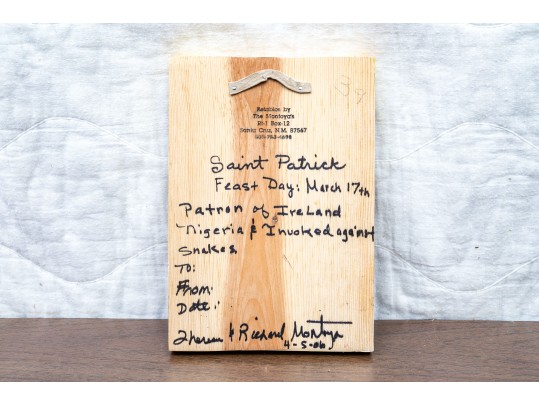 39
Retablos by
The Montoya's
Rt-1 Box-12
Santa Cruz, N.M. 87567
505-753-4698
Saint Patrick
Feast Day: March 17th
Patron of Ireland
Nigeria & Invoked against
Snakes.
To:
From:
Date:
& Richard Montoya
4-5-06